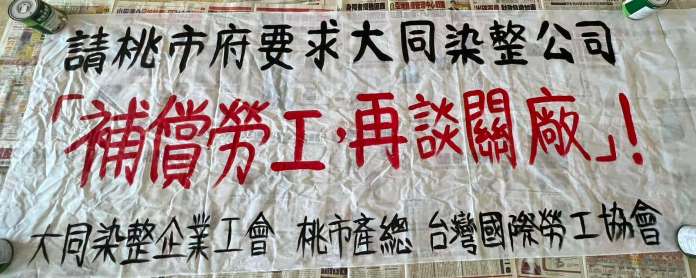 請桃市府要求大同染整公司
「補償勞工，再談關廠」！
大同染整企業工會 桃市產總 台灣國際勞工協會